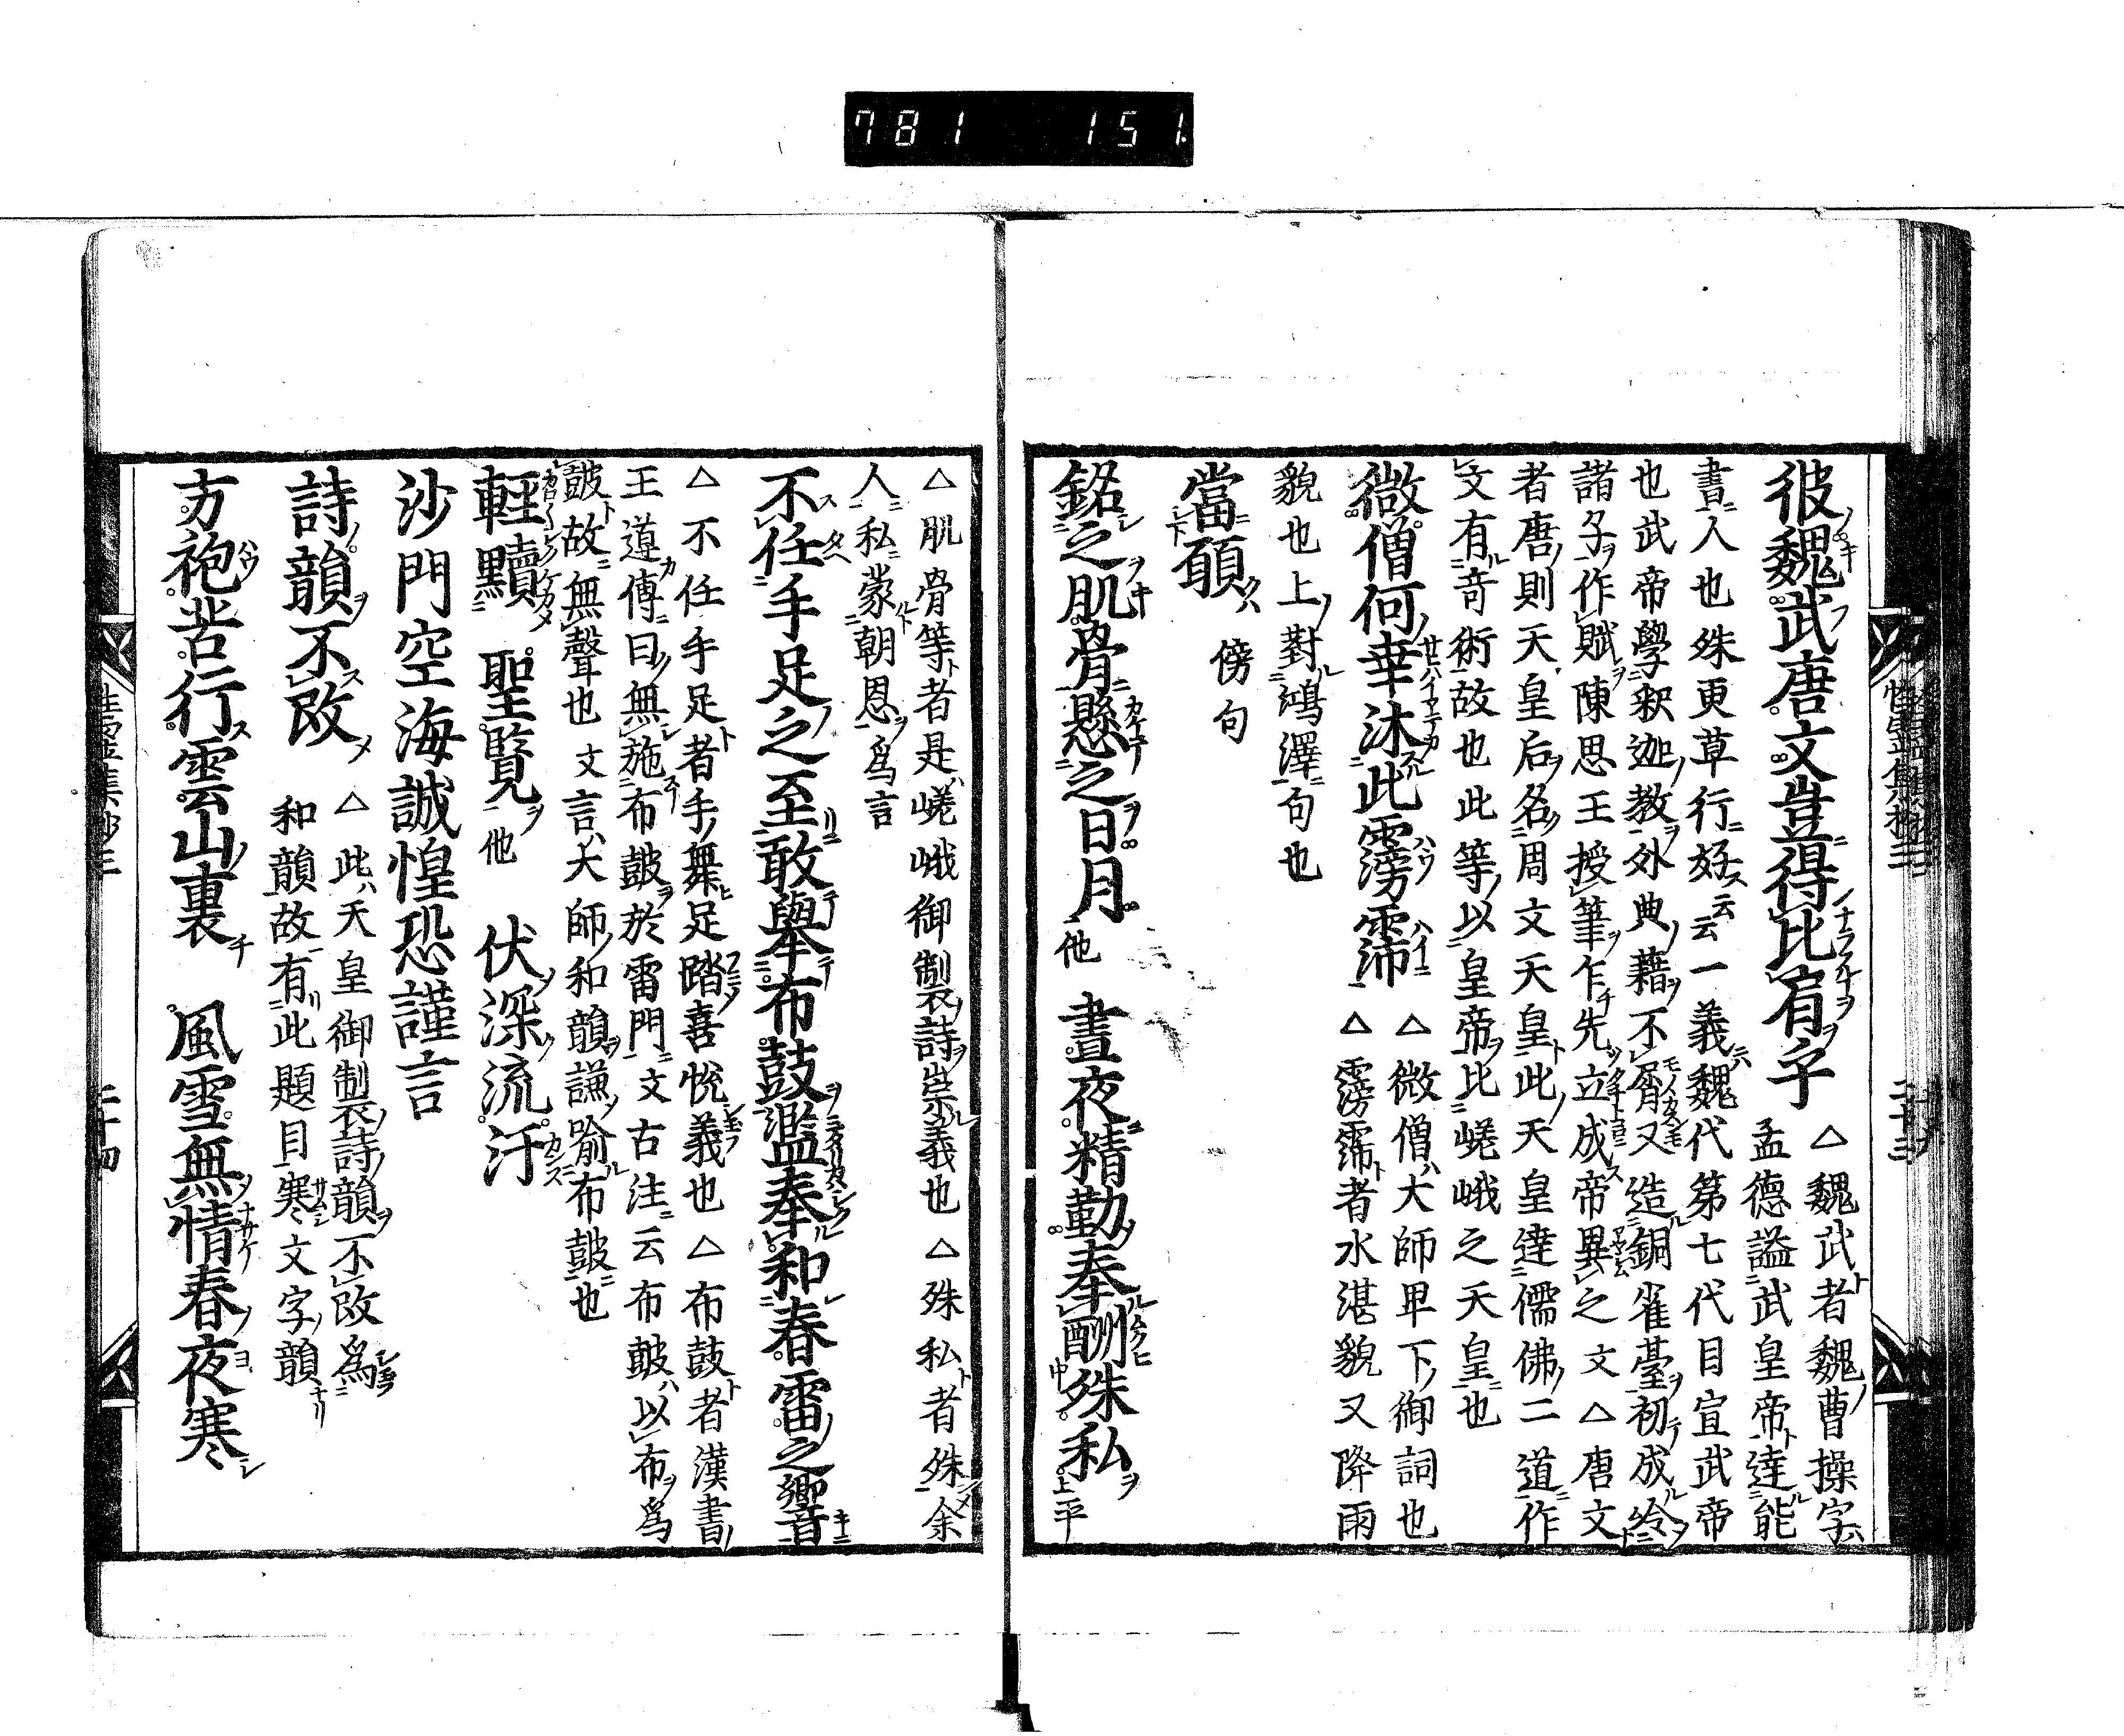 781 151
彼魏武唐文豈得比肩乎
△魏武者魏曹操字
孟德謚武皇帝達能
書人也殊更草行好云云一義魏代第七代目宣武帝
也武帝學釈迦教外典藉不屑又造銅雀臺初成絵
諸子作賦陳思王授筆乍先立成帝異之文△唐文
者唐則天皇后名周文天皇此天皇達儒佛二道作
文有奇術故也此等以皇帝比嵯峨之天皇也
微僧何幸沐此霶霈
△微僧大師卑下御詞也
△霶霈者水湛貌又降雨
貌也上對鴻澤句也
當頭
傍句
銘之肌骨懸之日月
他
晝夜精勤奉酬殊私
平
△肌骨等者是嵯峨御製詩崇義也△殊私者殊余
人私蒙朝恩為言
不任手足之至敢擧布鼓濫奉和春雷之響音
△不任手足者手舞足踏喜悅義也△布鼓者漢書
王遵傳曰無施布皷於雷門文古注云布皷以布為
皷故無聲也文言大師和韻謙喻布皷也
輕黷聖覽
他
伏深流汗
沙門空海誠惶恐謹言
詩韻不改
△此天皇御製詩韻不改為
和韻故有此題目寒文字韻
方袍苦行雲山裏
風雪無情春夜寒